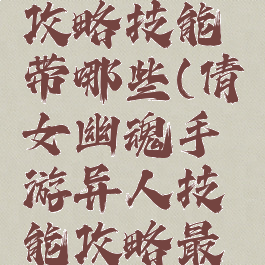 攻略技能
带哪些(倩
女幽魂手
游异人技
能攻略最